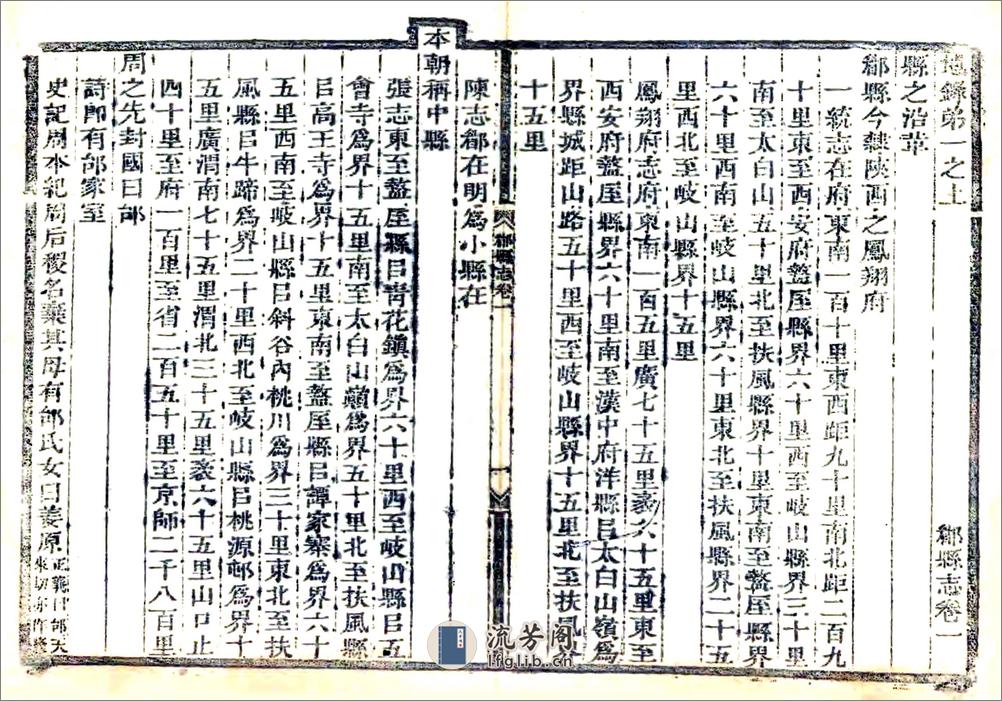 地錄弟一之上 郿縣志卷一
縣之治革
郿縣今隸陝西之鳳翔府
一統志在府東南一百十里東西距九十里南北距二百九
十里東至西安府盩厔縣界六十里西至岐山縣界三十里
南至太白山五十里北至扶風縣界十里東南至盩厔縣界
六十里西南至岐山縣界六十里東北至扶風縣界二十五
里西北至岐山縣界十五里
鳳翔府志府東南一百五里廣七十五里袤六十五里東至
西安府盩厔縣界六十里南至漢中府洋縣㠯太白山嶺爲
界縣城距山路五十里西至岐山縣界十五里北至扶風
十五里
郿縣志卷一
一
陳志郿在明爲小縣在
本朝稱中縣
張志東至盩厔縣㠯青花鎮爲界六十里西至岐山縣㠯五
會寺爲界十五里南至太白山嶺爲界五十里北至扶風縣
㠯高王寺爲界十五里東南至盩厔縣㠯譚家寨爲界六十
五里西南至岐山縣㠯斜谷內桃川爲界三十里東北至扶
風縣㠯牛蹄爲界二十里西北至岐山縣㠯桃源邨爲界十
五里廣渭南七十五里渭北三十五里袤六十五里山口止
四十里至府一百里至省二百五十里至京師二千八百里
周之先封國曰邰
詩卽有邰家室
史記周本紀周后稷名棄其母有邰氏女曰姜原
流芳阁
lfglib.cn